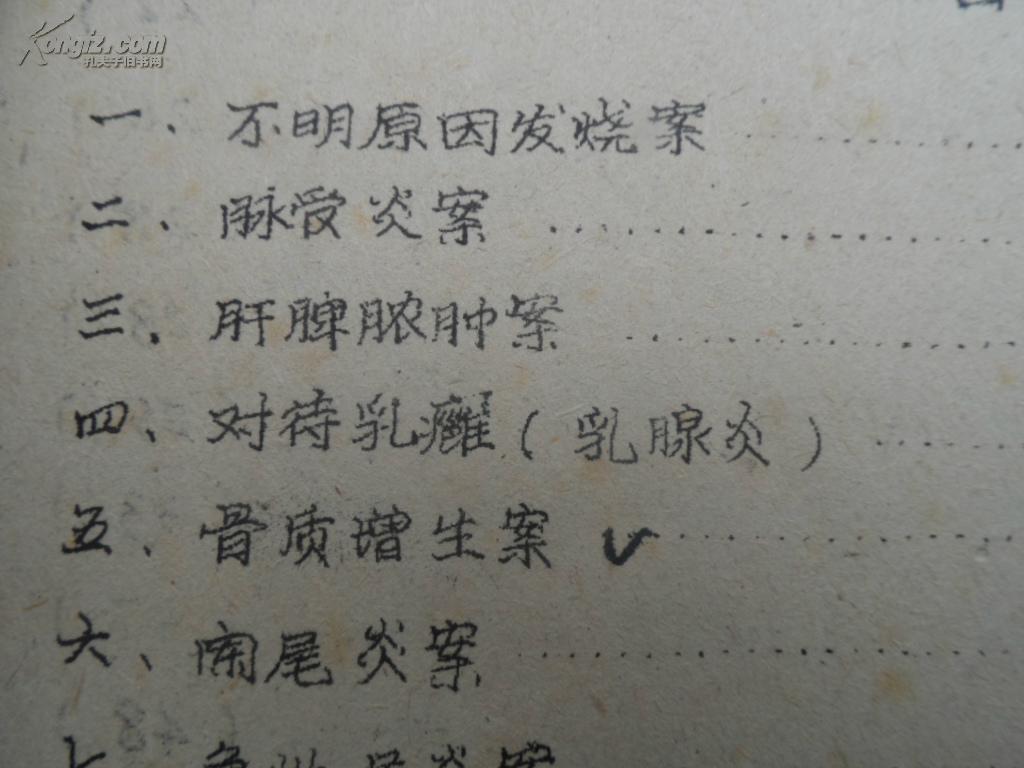 Kongfz.com
孔夫子旧书网
一、不明原因发烧案
二、脉受炎案
三、肝脾脓肿案
四、对待乳癰(乳腺炎)
五、骨质增生案 ✓
六、阑尾炎案
七、急性